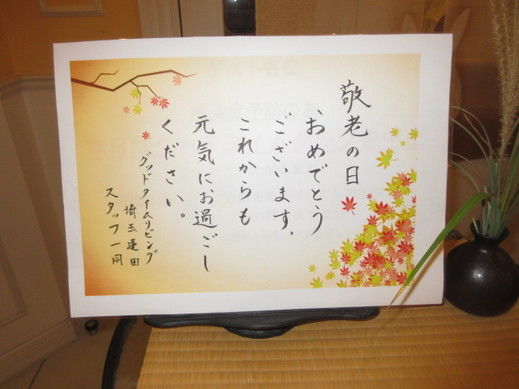 敬老の日
おめでとう
ございます。
これからも
元気にお過ごし
ください。
グッドタイムリビング
埼玉蓮田
スタッフ一同